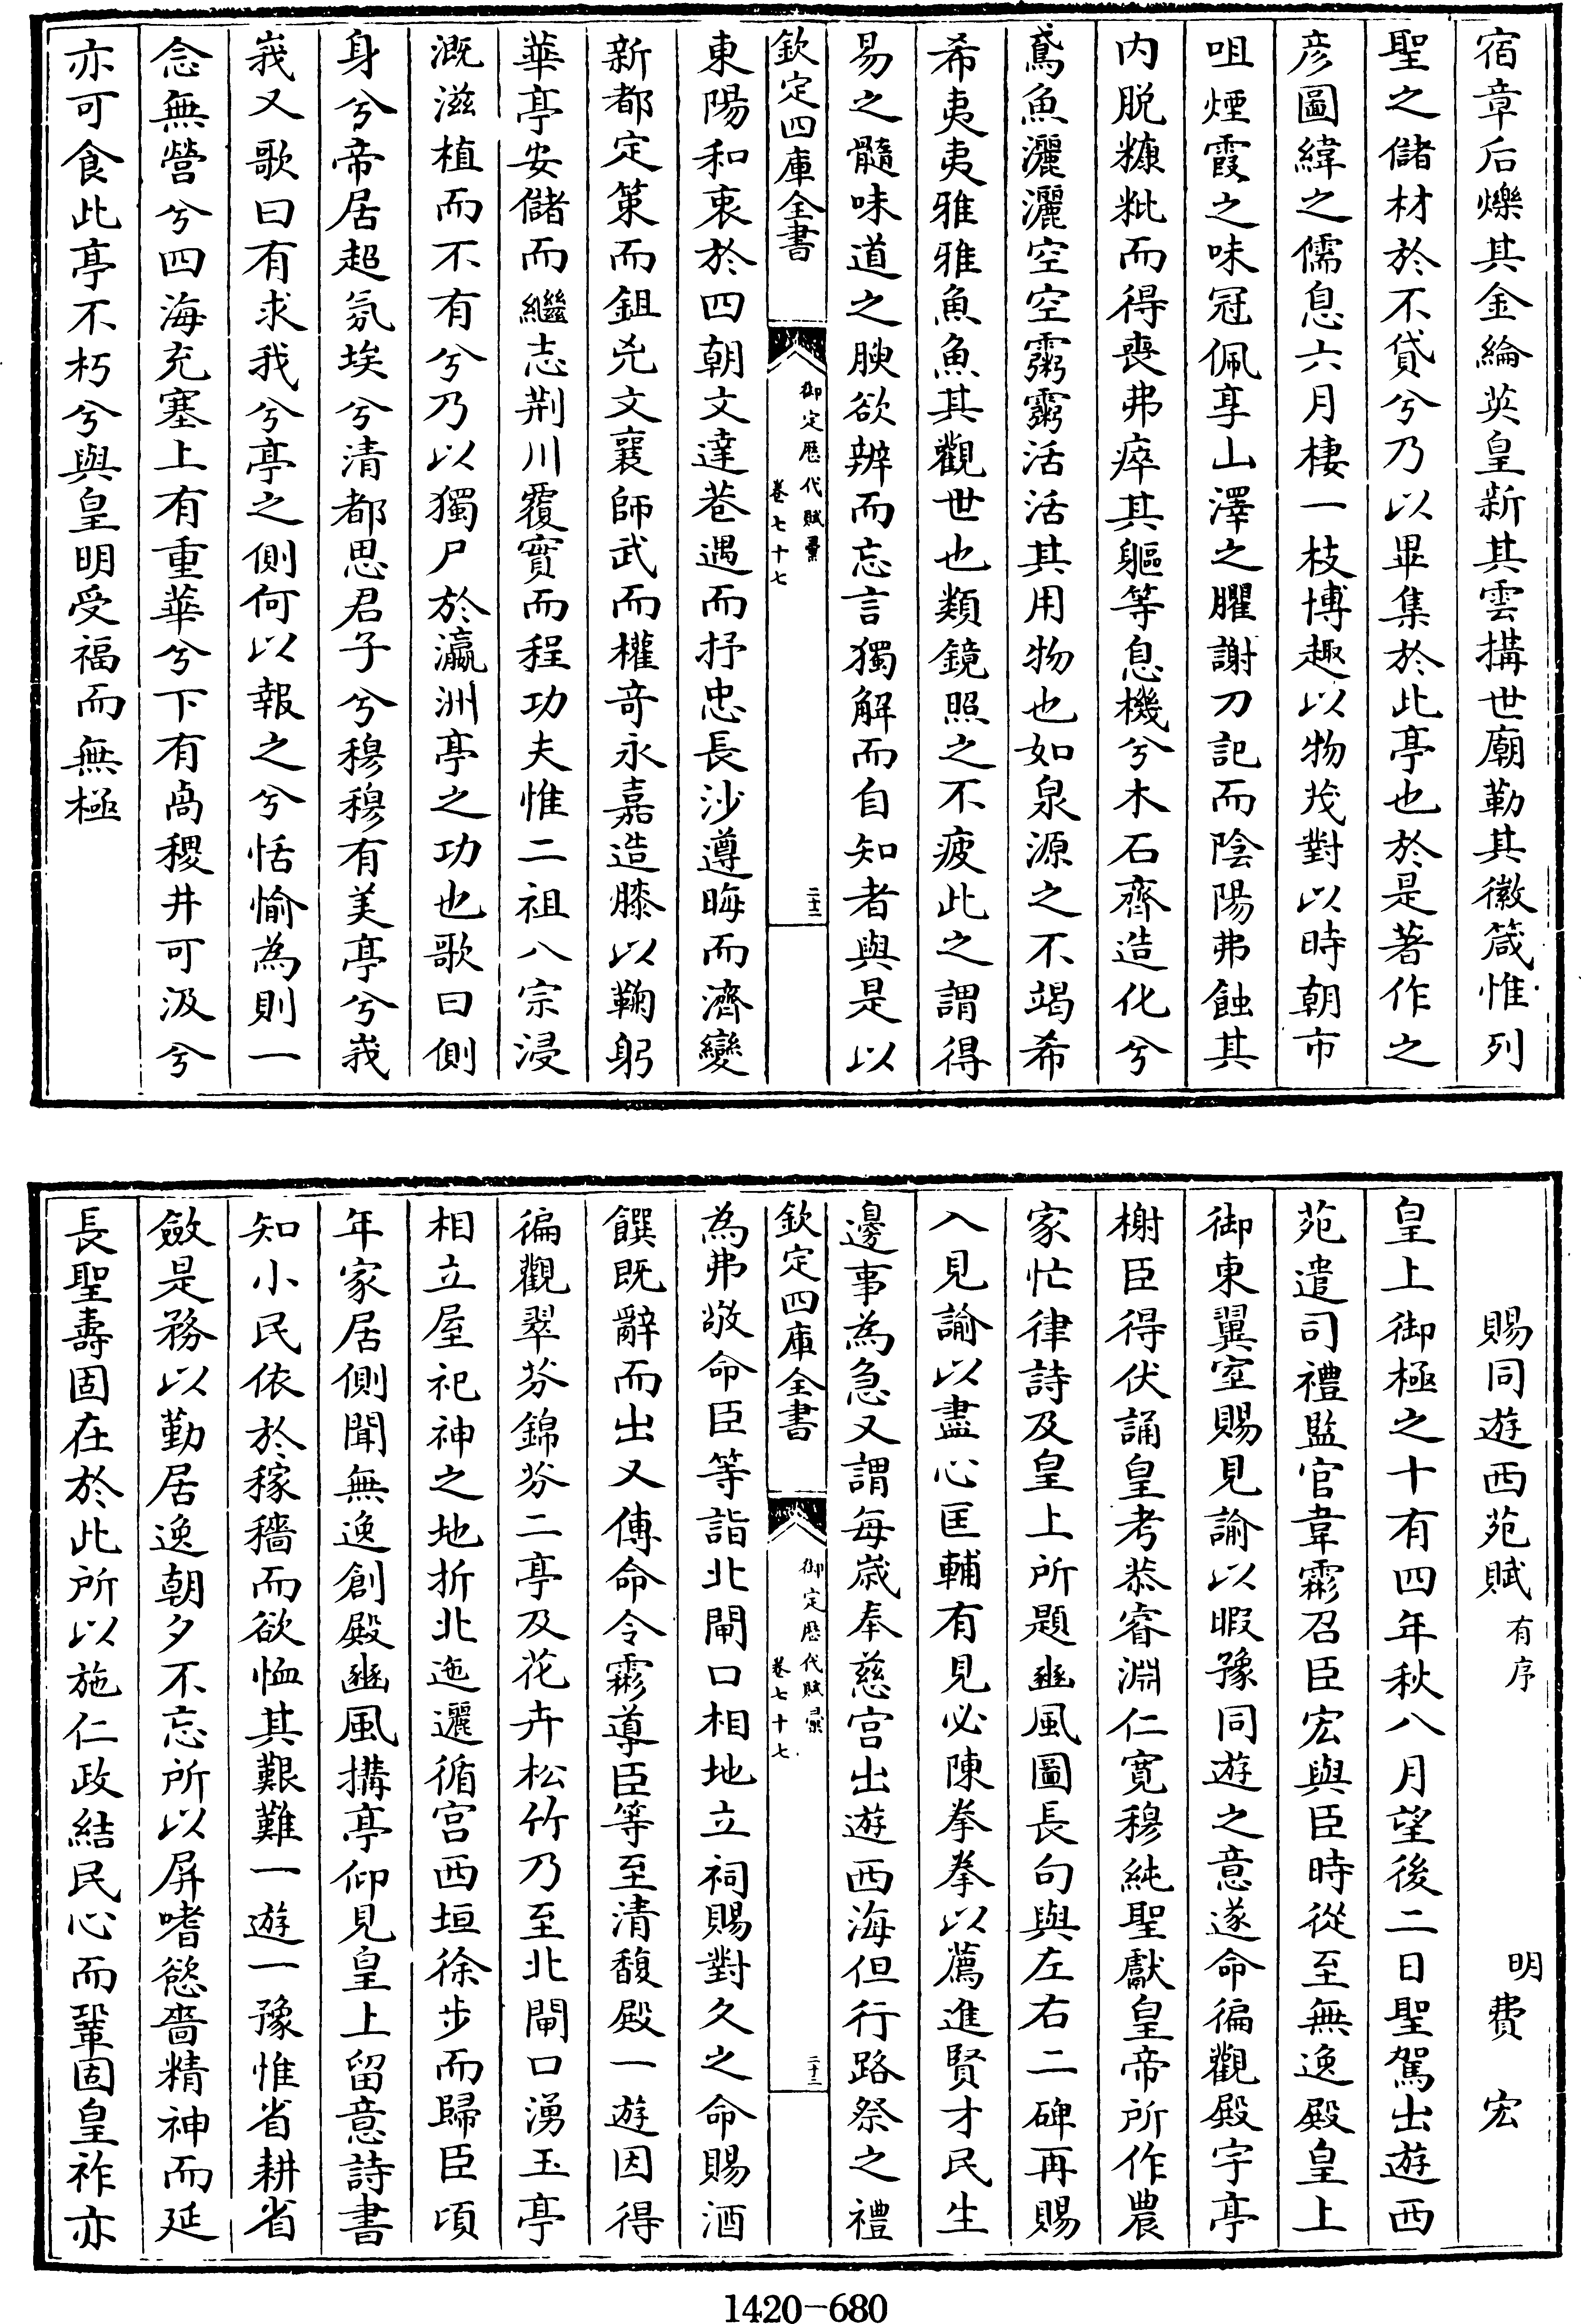 宿章后爍其金綸英皇新其雲搆世廟勒其徽箴惟列
聖之儲材於不貸兮乃以畢集於此亭也於是著作之
彦圖緯之儒息六月棲一枝博趣以物茂對以時朝市
咀煙霞之味冠佩享山澤之臞謝刀記而陰陽弗蝕其
内脱糠粃而得喪弗瘁其軀等息機兮木石齊造化兮
鳶魚灑灑空空霧霧活活其用物也如泉源之不竭希
希夷夷雅雅魚魚其觀世也類鏡照之不疲此之謂得
易之髓味道之腴欲辨而忘言獨解而自知者與是以
欽定四庫全書
御定歴代賦彚
卷七十七
二十二
東陽和衷於四朝文達巷遇而抒忠長沙遵晦而濟變
新都定策而鉏兇文襄師武而權奇永嘉造膝以鞠躬
華亭安儲而繼志荆川覆實而程功夫惟二祖八宗浸
溉滋植而不有兮乃以獨尸於瀛洲亭之功也歌曰側
身兮帝居超氛埃兮清都思君子兮穆穆有美亭兮峩
峩又歌曰有求我兮亭之側何以報之兮恬愉為則一
念無營兮四海充塞上有重華兮下有卨稷井可汲兮
亦可食此亭不朽兮與皇明受福而無極
賜同遊西苑賦有序
明費宏
皇上御極之十有四年秋八月望後二日聖駕出遊西
苑遣司禮監官韋霦召臣宏與臣時從至無逸殿皇上
御東翼室賜見諭以暇豫同遊之意遂命徧觀殿宇亭
榭臣得伏誦皇考恭睿淵仁寛穆純聖獻皇帝所作農
家忙律詩及皇上所題豳風圖長句與左右二碑再賜
入見諭以盡心匡輔有見必陳拳拳以薦進賢才民生
邊事為急又謂每歳奉慈宫出遊西海但行路祭之禮
欽定四庫全書
御定歴代賦彚
卷七十七
二十二
為弗敬命臣等詣北閘口相地立祠賜對久之命賜酒
饌既辭而出又傳命令霦導臣等至清馥殿一遊因得
徧觀翠芬錦芬二亭及花卉松竹乃至北閘口湧玉亭
相立屋祀神之地折北迤邐循宫西垣徐步而歸臣頃
年家居側聞無逸創殿豳風搆亭仰見皇上留意詩書
知小民依於稼穡而欲恤其艱難一遊一豫惟省耕省
斂是務以勤居逸朝夕不忘所以屏嗜慾嗇精神而延
長聖壽固在於此所以施仁政結民心而鞏固皇祚亦
1420-680